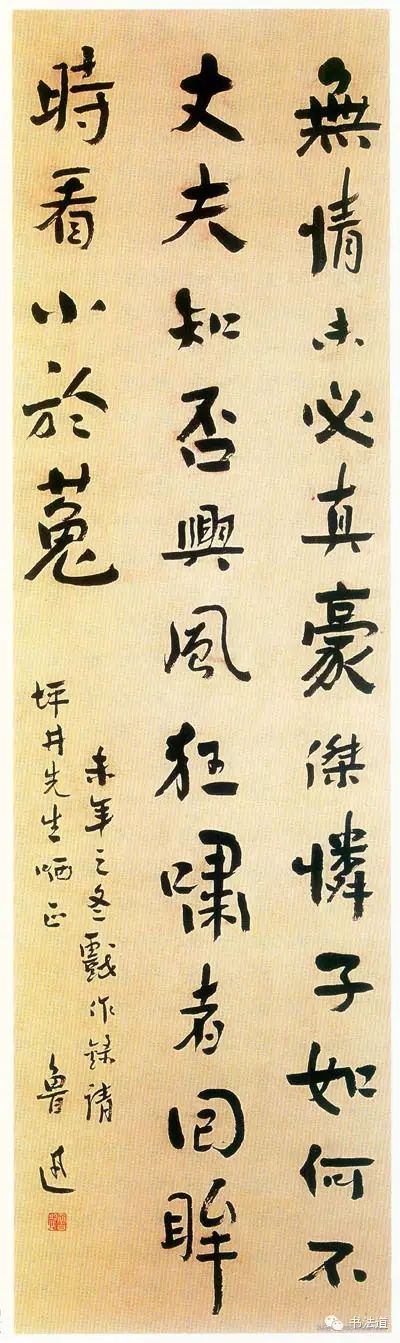 無情未必真豪傑憐子如何不
丈夫知否興風狂嘯者回眸
時看小於菟
未年之冬戲作錄請
坪井先生哂正
魯迅
书法道